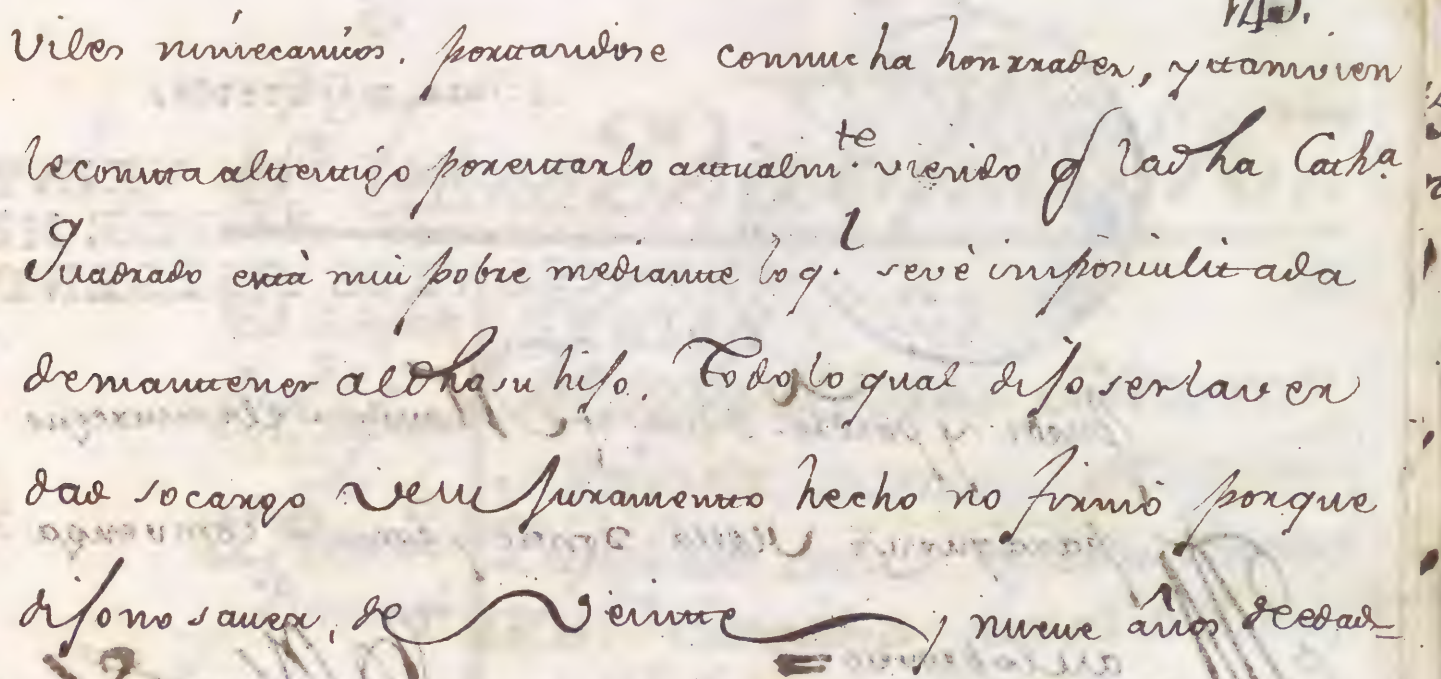 143.
viles nimecanicos, portandose conmucha honrrades, y ttamvien
leconsta alttestigo porestarlo actualm.te viendo q ladha Cath.a
Quadrado està mui pobre mediantte lo q.l sevè imposivilitada
demanttener aldho su hijo. Todo lo qual dijo serlaver
dad socargo desu Juramentto hecho no firmò porque
dijo no saver, de Veintte y nueve años deedad_